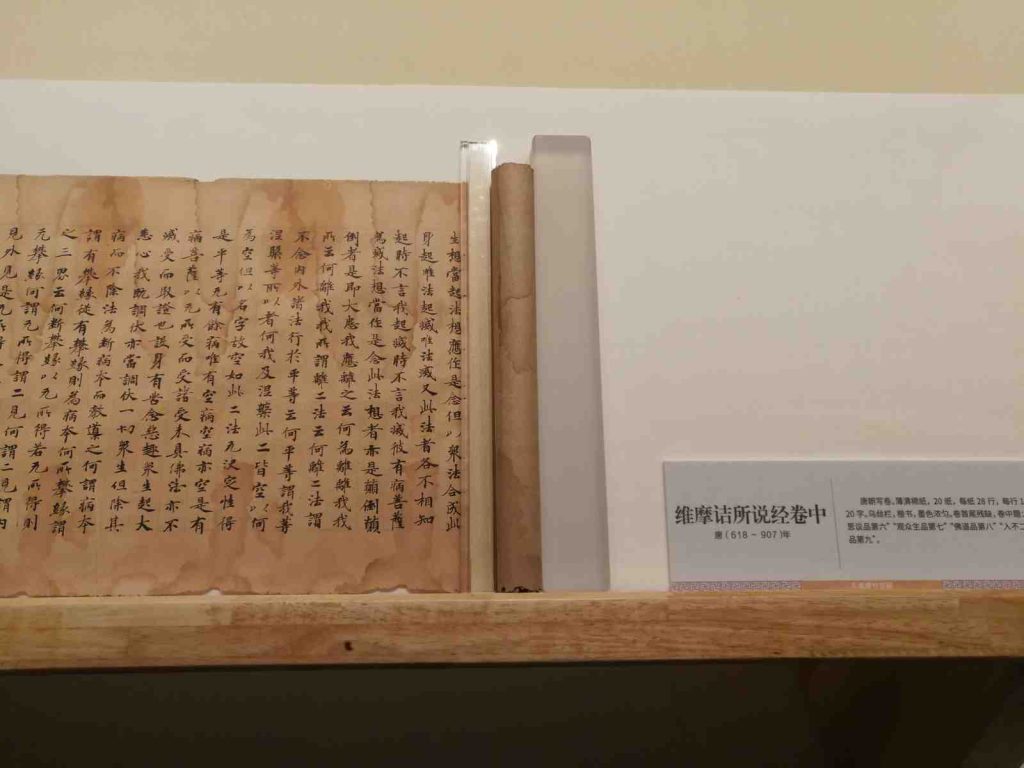 生想當起法想應作是念但以衆法合成此
身起唯法起滅唯法滅又此法者各不相知
起時不言我起滅時不言我滅彼有病菩薩
爲滅法想當作是念此法想者亦是顛倒顛
倒者是即大患我應離之云何爲離離我我
所云何離我我所謂離二法云何離二法謂
不念内外諸法行於平等云何平等謂我等
涅槃等所以者何我及涅槃此二皆空以何
爲空但以名字故空如此二法无決定性得
是平等无有餘病唯有空病空病亦空是有
病菩薩以无所受而受諸受未具佛法亦不
滅受而取證也設身有苦念惡趣衆生起大
悲心我既調伏亦當調伏一切衆生但除其
病而不除法爲斷病本而教導之何謂病本
謂有攀緣從有攀緣則爲病本何所攀緣謂
之三界云何斷攀緣以无所得若无所得則
无攀緣何謂无所得謂二見何謂二見謂内
見外見是无所得
维摩诘所说经卷中
唐（618 ~ 907）年
唐朝写卷，薄潢棉纸，20纸，每纸28行，每行1
20字，乌丝栏，楷书，墨色浓匀，卷首尾残缺，卷中题
思议品第六”“观众生品第七”“佛道品第八”“入不二
品第九”。